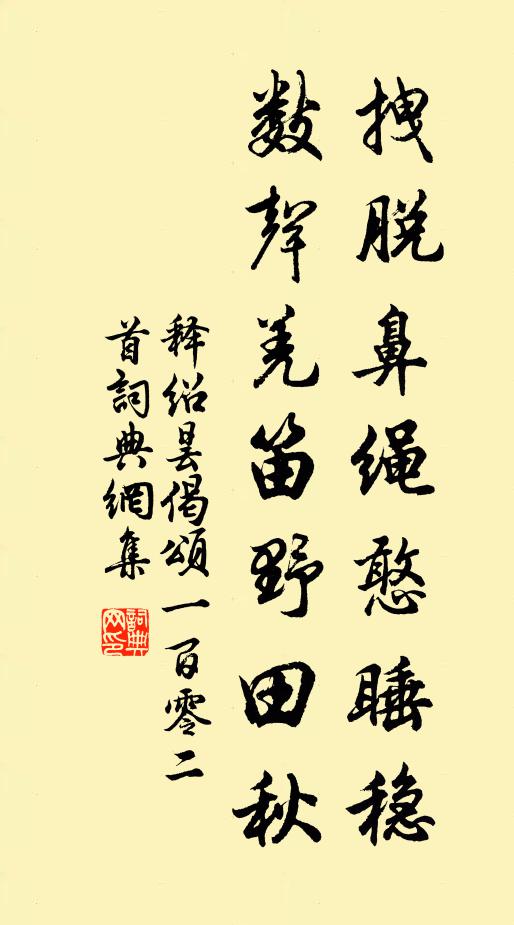 拽脱鼻绳憨睡稳
数声羌笛野田秋
释绍昙偈颂一百零二
首詞典網集
詞典網印